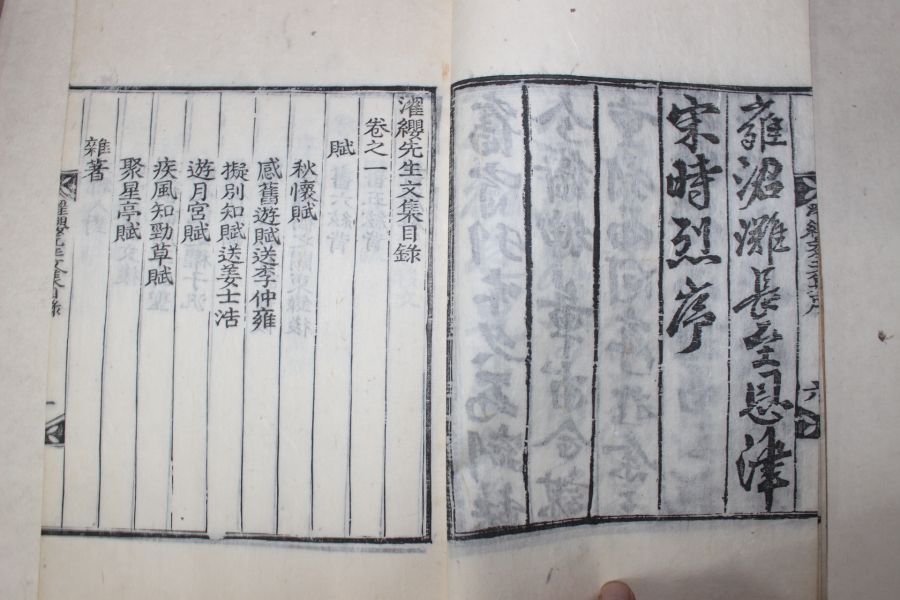 雍涒灘長至恩津
宋時烈序
濯纓先生文集目錄
卷之一
賦
秋懷賦
感舊遊賦送李仲雍
擬別知賦送姜士浩
遊月宮賦
疾風知勁草賦
聚星亭賦
雜著
濯纓先生文集目錄